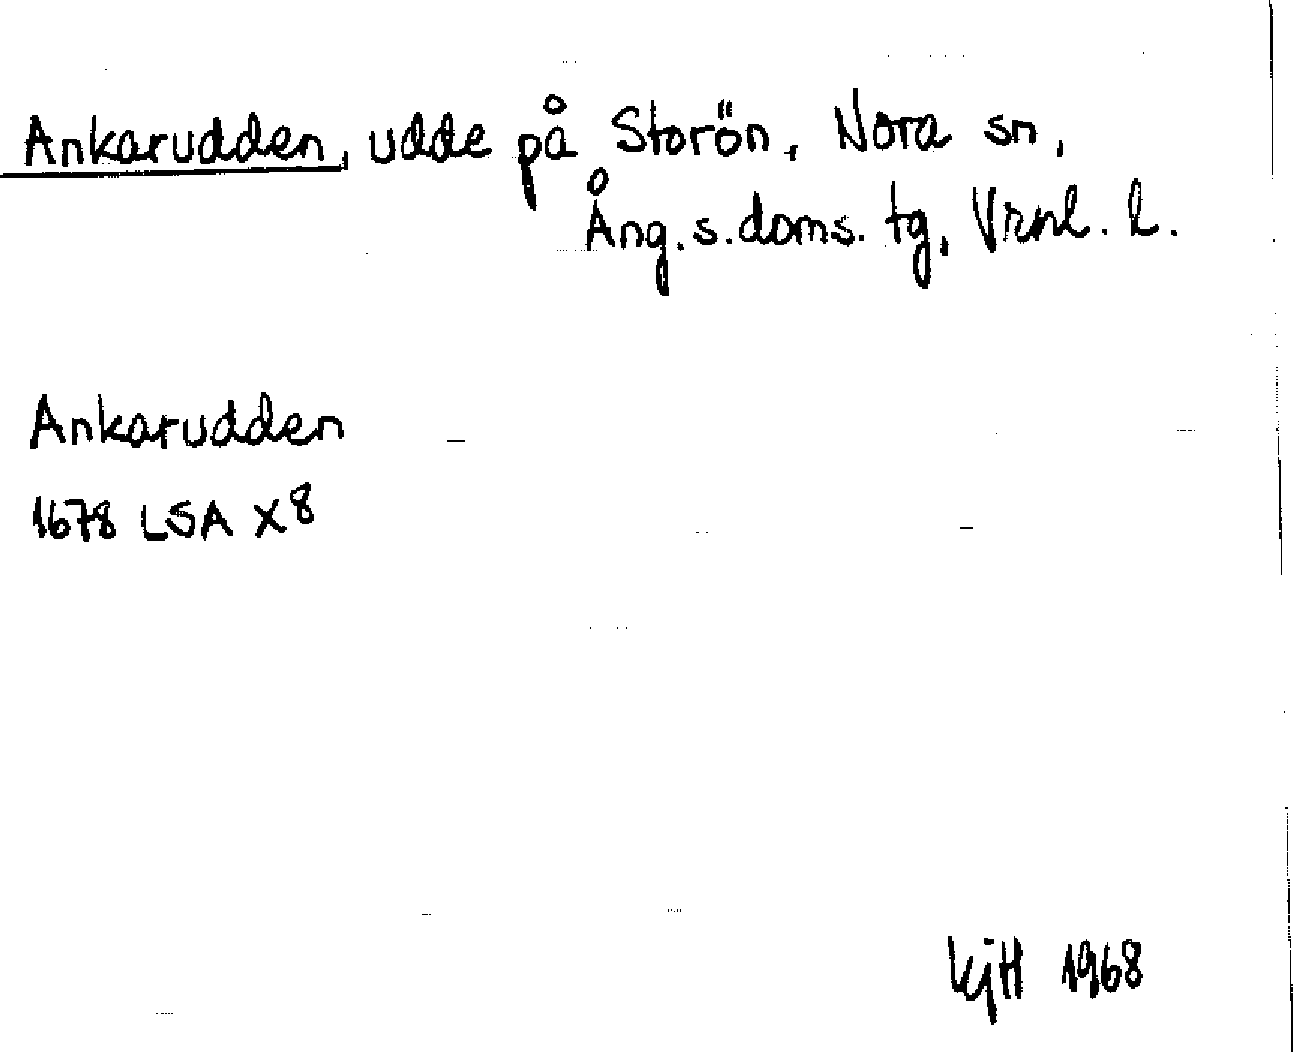 Ankarudden, udde på Storön, Nora sn,
Ång.s.doms. tg, Vrnl. l.
Ankarudden
1678 LSA X8
KjH 1968